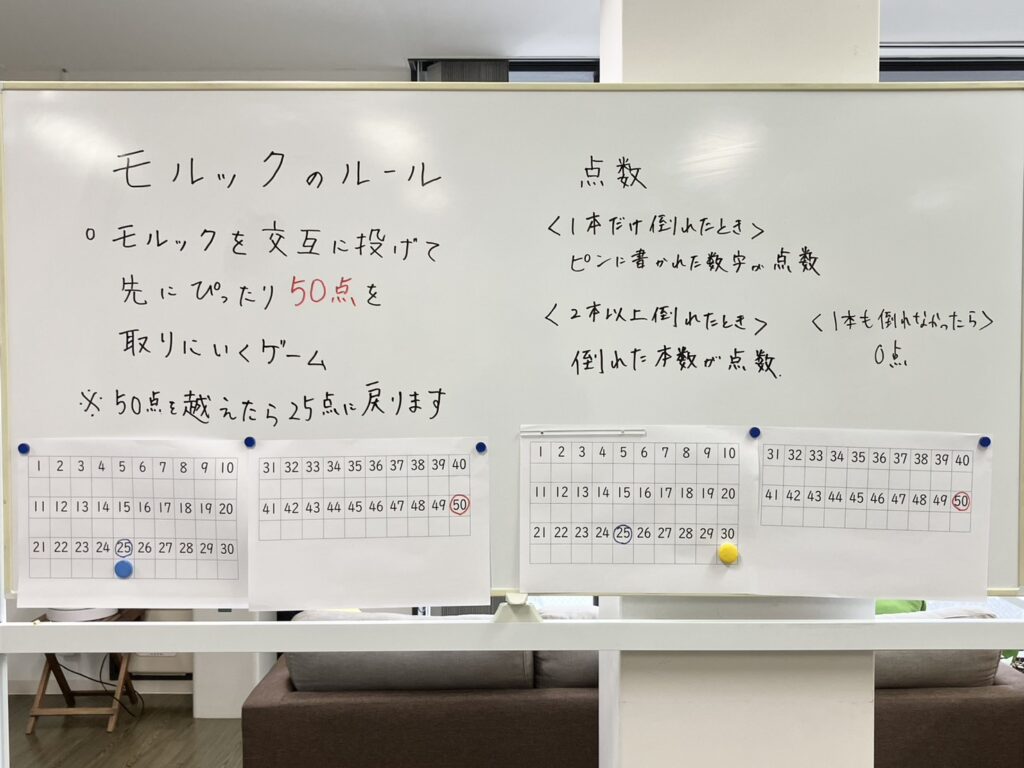 モルックのルール
○ モルックを交互に投げて
先にぴったり50点を
取りにいくゲーム
※ 50点を越えたら25点に戻ります
点数
<1本だけ倒れたとき>
ピンに書かれた数字が点数
<2本以上倒れたとき>
倒れた本数が点数.
<1本も倒れなかったら>
0点
1 2 3 4 5 6 7 8 9 10
11 12 13 14 15 16 17 18 19 20
21 22 23 24 25 26 27 28 29 30
31 32 33 34 35 36 37 38 39 40
41 42 43 44 45 46 47 48 49 50
1 2 3 4 5 6 7 8 9 10
11 12 13 14 15 16 17 18 19 20
21 22 23 24 25 26 27 28 29 30
31 32 33 34 35 36 37 38 39 40
41 42 43 44 45 46 47 48 49 50